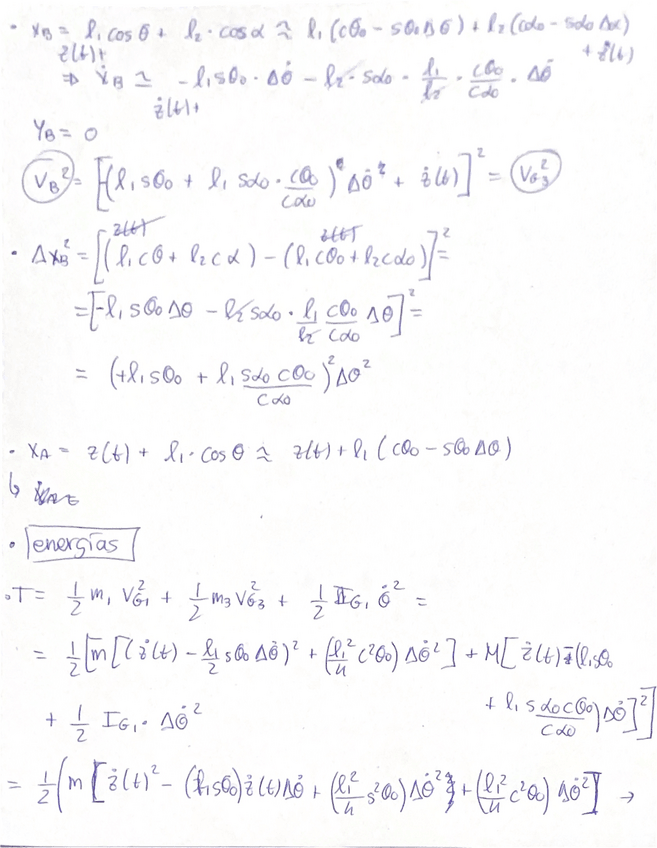 • xB = l₁ cos θ + l₂ · cos α ≃ l₁ (cθ₀ − sθ₀ Δθ) + l₂ (cα₀ − sα₀ Δα)
z(t)+ + z(t)
⇒ ẋB ≃ − l₁ sθ₀ · Δθ̇ − l₂ · sα₀ · l₁/l₂ · cθ₀/cα₀ · Δθ̇
ż(t)+
YB = 0
VB² = [(l₁ sθ₀ + l₁ sα₀ · cθ₀/cα₀) Δθ̇ + ż(t)]² = VG3²
z(t) z(t)
• ΔxB² = [(l₁ cθ + l₂ cα) − (l₁ cθ₀ + l₂ cα₀)]² =
= [− l₁ sθ₀ Δθ − l₂ sα₀ · l₁/l₂ cθ₀/cα₀ Δθ]² =
= (+l₁ sθ₀ + l₁ sα₀ cθ₀/cα₀)² Δθ²
• xA = z(t) + l₁ · cos θ ≃ z(t) + l₁ (cθ₀ − sθ₀ Δθ)
• energías
• T = 1/2 m₁ VG1² + 1/2 m₃ VG3² + 1/2 IG1 θ̇² =
= 1/2 [m [(ż(t) − l₁/2 sθ₀ Δθ̇)² + (l₁²/4 c²θ₀) Δθ̇²] + M [ż(t) − (l₁ sθ₀
+ l₁ sα₀ cθ₀/cα₀) Δθ̇]²]
+ 1/2 IG1 · Δθ̇²
= 1/2 (m [ż(t)² − (l₁ sθ₀) ż(t) Δθ̇ + (l₁²/4 s²θ₀) Δθ̇² + (l₁²/4 c²θ₀) Δθ̇²] →